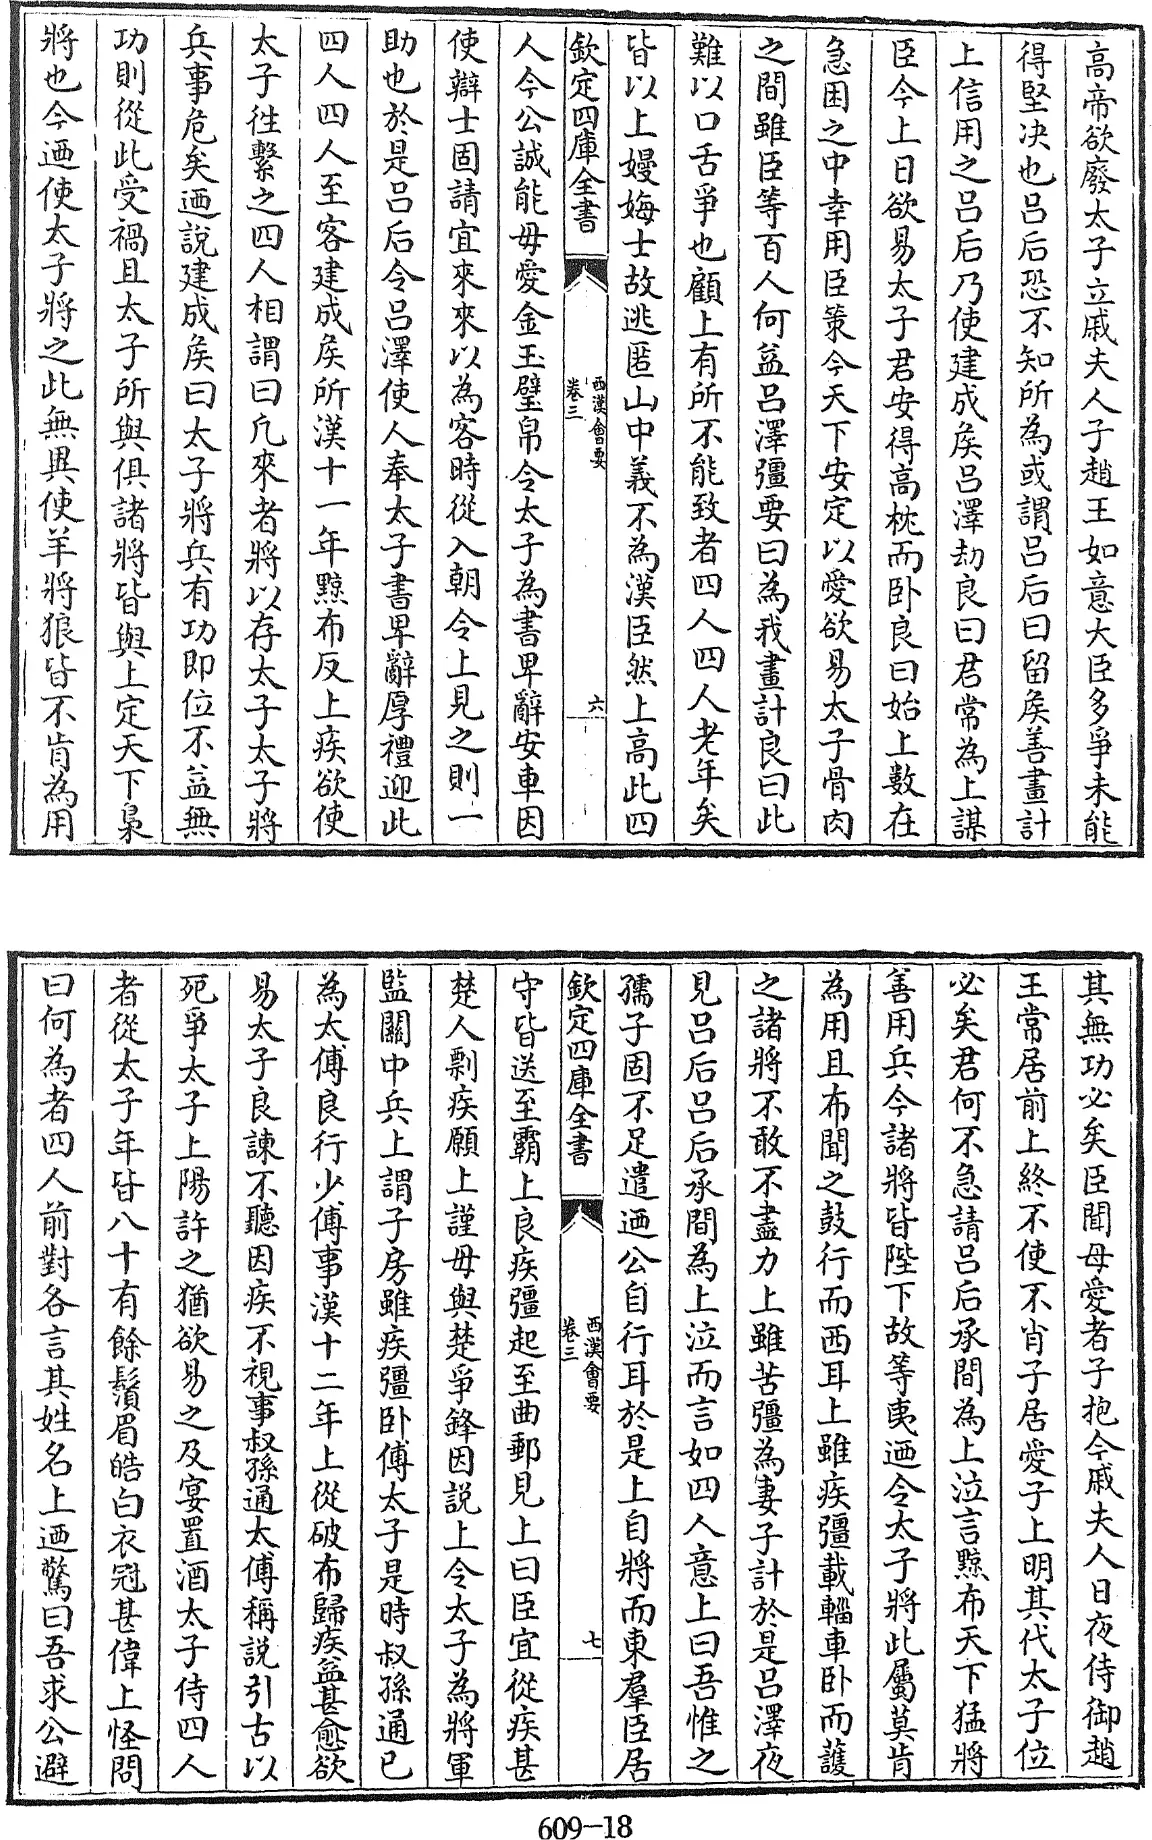 高帝欲廢太子立戚夫人子趙王如意大臣多爭未能
得堅決也吕后恐不知所為或謂吕后曰留矦善畫計
上信用之吕后乃使建成矦吕澤刼良曰君常為上謀
臣今上日欲易太子君安得高枕而卧良曰始上數在
急困之中幸用臣策今天下安定以愛欲易太子骨肉
之間雖臣等百人何益吕澤彊要曰為我畫計良曰此
難以口舌爭也顧上有所不能致者四人四人老年矣
皆以上嫚侮士故逃匿山中義不為漢臣然上高此四
欽定四庫全書
西漢會要
卷三
六
人今公誠能毋愛金玉璧帛令太子為書卑辭安車因
使辯士固請宜來來以為客時從入朝令上見之則一
助也於是吕后令吕澤使人奉太子書卑辭厚禮迎此
四人四人至客建成矦所漢十一年黥布反上疾欲使
太子往繫之四人相謂曰凢來者將以存太子太子將
兵事危矣迺說建成矦曰太子將兵有功即位不益無
功則從此受禍且太子所與俱諸將皆與上定天下梟
將也今迺使太子將之此無異使羊將狼皆不肯為用
其無功必矣臣聞母愛者子抱今戚夫人日夜侍御趙
王常居前上終不使不肖子居愛子上明其代太子位
必矣君何不急請吕后承間為上泣言黥布天下猛將
善用兵今諸將皆陛下故等夷迺令太子將此屬莫肯
為用且布聞之鼓行而西耳上雖疾彊載輜車卧而護
之諸將不敢不盡力上雖苦彊為妻子計於是吕澤夜
見吕后吕后承間為上泣而言如四人意上曰吾惟之
孺子固不足遣迺公自行耳於是上自將而東羣臣居
欽定四庫全書
西漢會要
卷三
七
守皆送至霸上良疾彊起至曲郵見上曰臣宜從疾甚
楚人剽疾願上謹毋與楚爭鋒因説上令太子為將軍
監關中兵上謂子房雖疾彊卧傅太子是時叔孫通已
為太傅良行少傅事漢十二年上從破布歸疾益甚愈欲
易太子良諫不聽因疾不視事叔孫通太傅稱説引古以
死爭太子上陽許之猶欲易之及宴置酒太子侍四人
者從太子年皆八十有餘鬚眉皓白衣冠甚偉上怪問
曰何為者四人前對各言其姓名上迺驚曰吾求公避
609-18